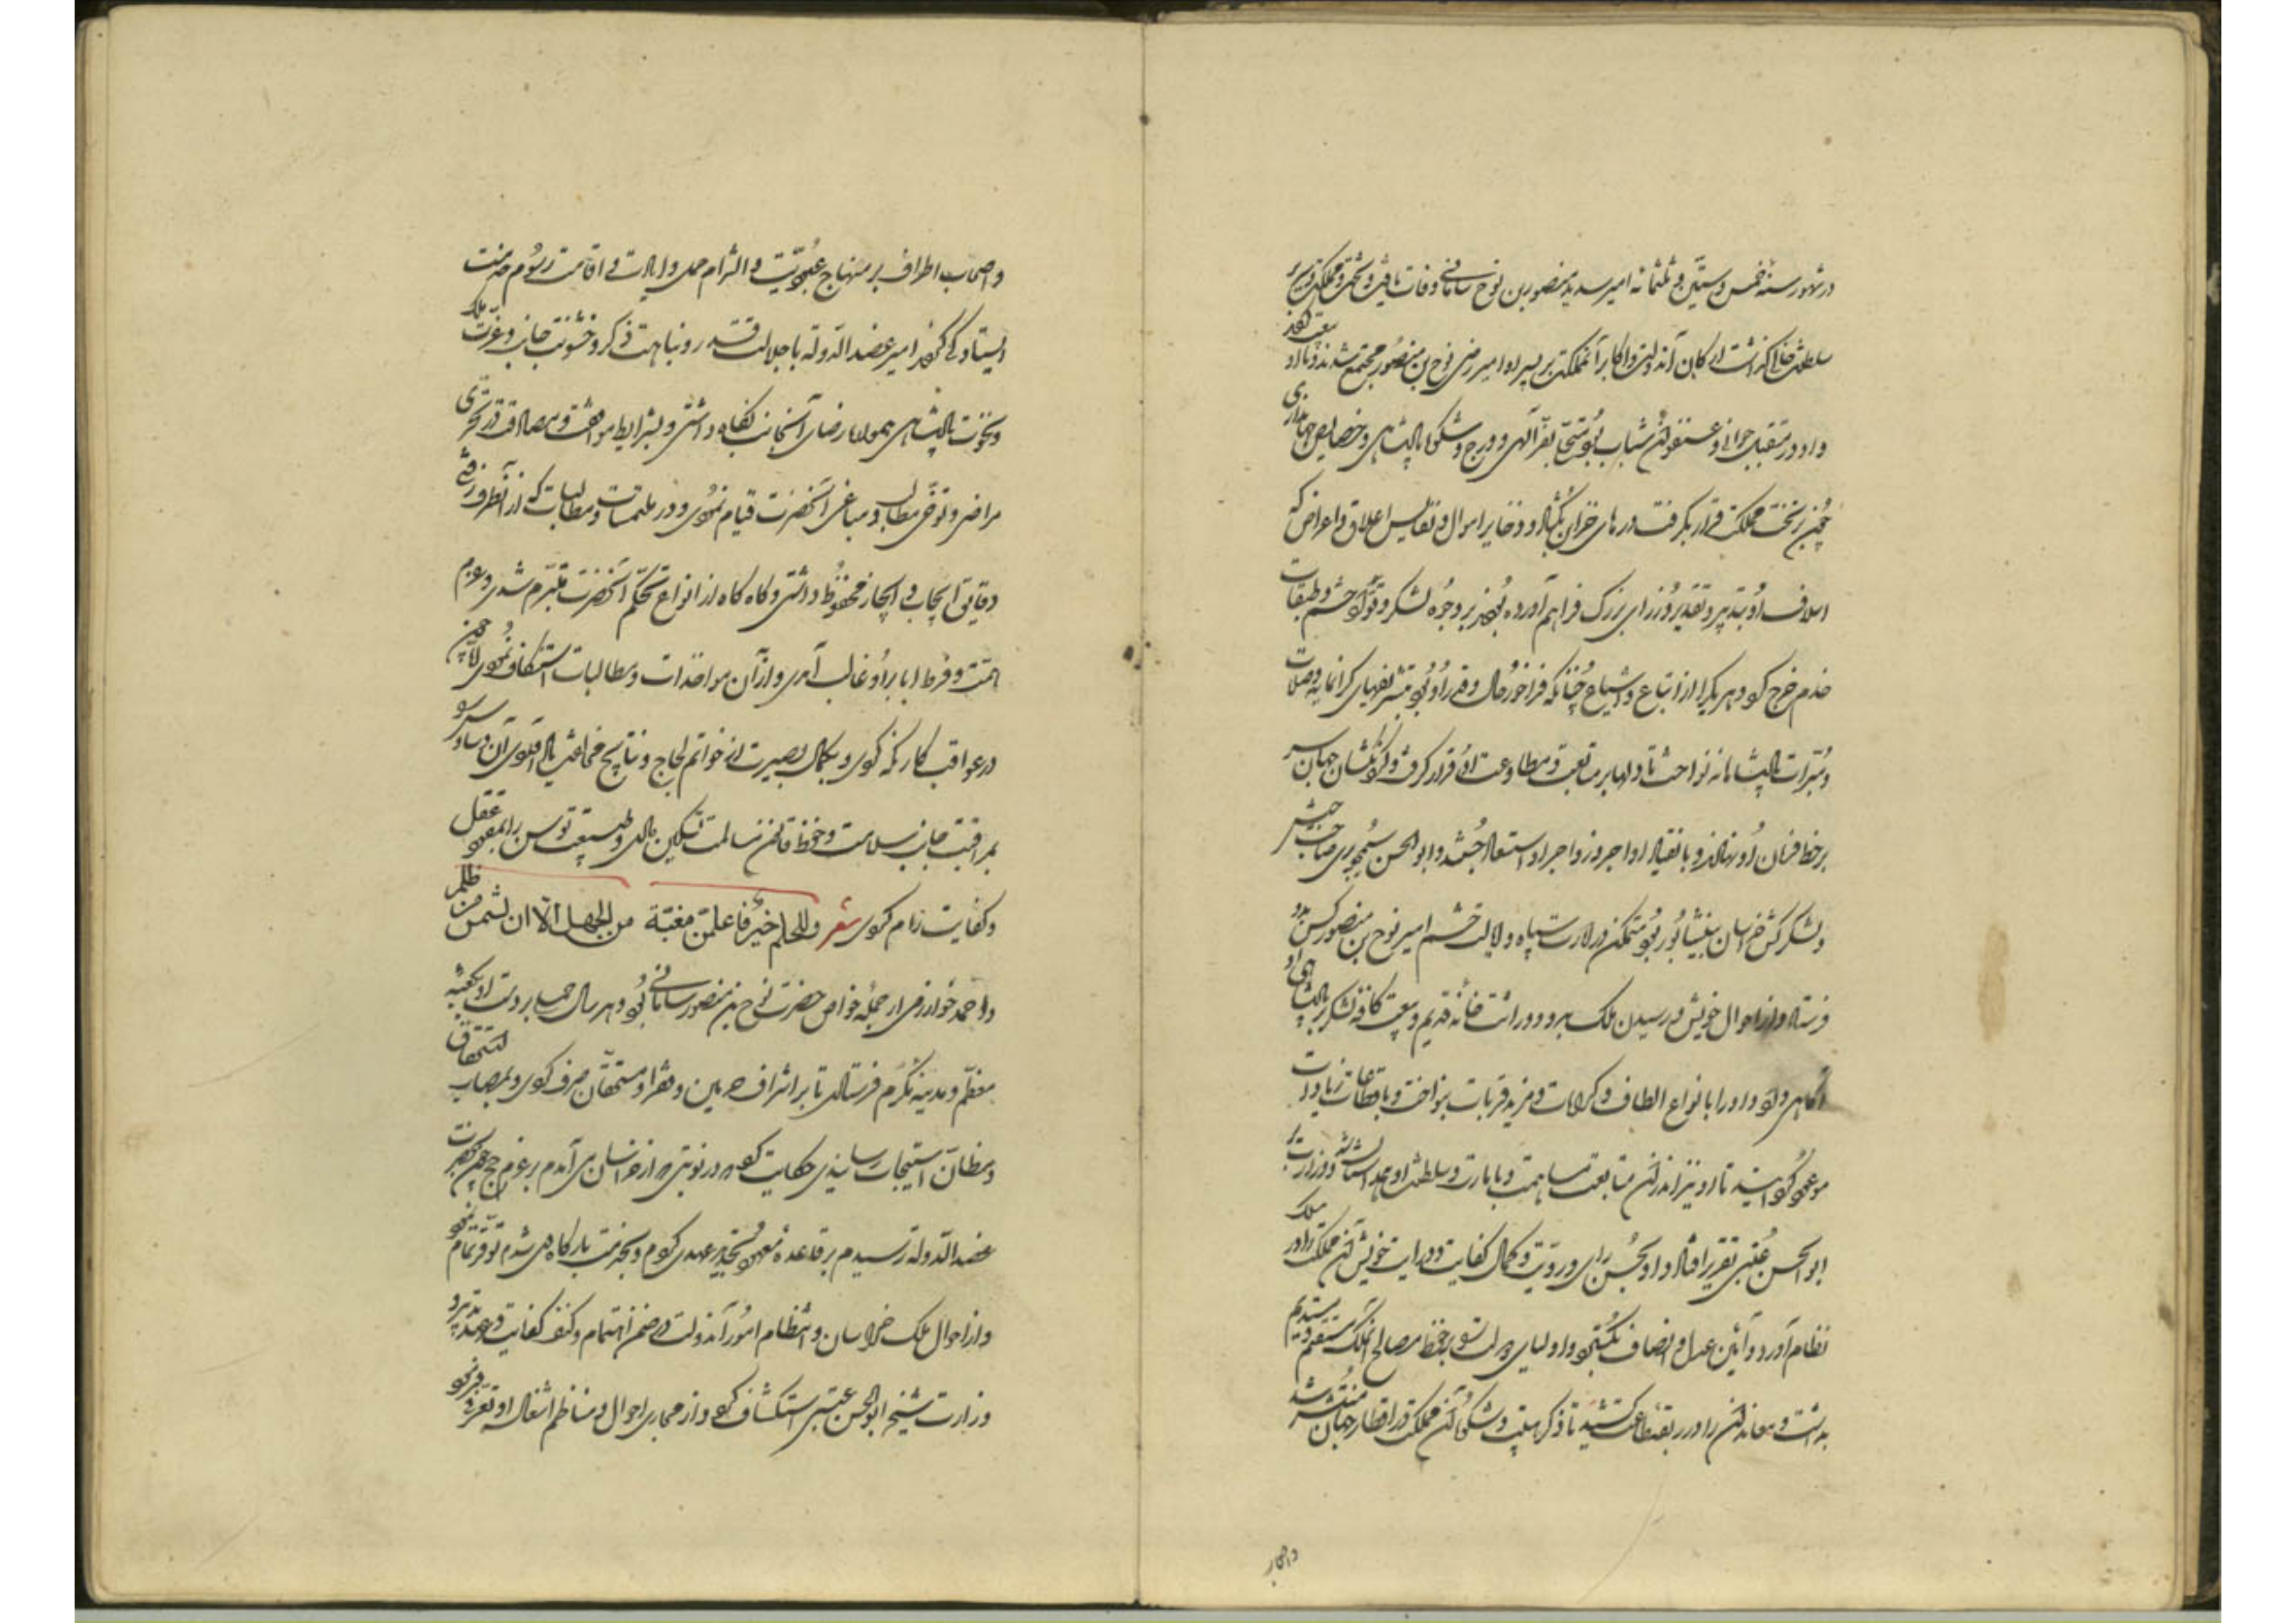 در شهور سنه خمس و ستین و ثلثمائه امیر سدید منصور بن نوح سامانی وفات یافت و تخت و مملکت و سریر
سلطنت خالی گذاشت ارکان آن دولت و اکابر آن مملکت بر پسر او امیر رضی نوح بن منصور مجتمع شدند و با او بیعت کردند
و او در مقتبل جوانی و عنفوان شباب بود متحلی بفر الهی و ورج و شکوه پادشاهی و خصایص جهانداری
چون بر تخت مملکت قرار بگرفت درهای خزاین بگشاد و ذخایر اموال و نفایس اعلاق و اعراض که
اسلاف او بتدبیر و تقدیر وزرای بزرگ فراهم آورده بودند بر وجوه لشکر و قواد حشم و طبقات
خدم خرج کرد و هر یک را از اتباع و اشیاع چنانکه فراخور حال و قدر او بود تشریفهای گرانمایه و صلات
و مبرات پادشاهانه نواخت تا دلها بر متابعت و مطاوعت او قرار گرفت و گردنکشان جهان سر
بر خط فرمان او نهادند و بانقیاد اوامر و زواجر او استسعاد جستند و ابوالحسن سیمجوری صاحب جیش
و لشکرکش خراسان بنیشابور بود متمکن در امارت سپاه و ایالت حشم امیر نوح بن منصور کس بدو
فرستاد و از احوال خویش و رسیدن ملک بدو و وراثت خانه قدیم و بیعت کافه لشکر بر پادشاهی او
آگاهی داد و او را بانواع الطاف و کرامات و مزید قربات بنواخت و باقطاعات و زیادات
موعود گردانید تا او نیز اندران متابعت مساهمت و سلطنت او و وزارت به
ابوالحسن عتبی تقریر افتاد و او بحسن رای و رویت و کمال کفایت و درایت خویش آن مملکت را در
نظام آورد و آیین عدل و انصاف بگسترد و اولیای دولت بر حفظ مصالح آن ملک مستقیم و مستدیم
بداشت و معاندان را در ربقه طاعت کشید تا ذکر هیبت و شکوه آن مملکت در اقطار جهان منتشر شد
و اصحاب اطراف بر منهاج عبودیت و التزام حمل و اقامت رسوم خدمت
ایستادگی کردند امیر عضدالدوله با جلالت قدر و نباهت ذکر و خشونت جانب و عزت ملک
و نخوت پادشاهی همواره رضای آن جانب نگاه داشتی و بشرایط موافقت و مصادقت در تحری
مراضی و توخی مطالب و مباغی آن حضرت قیام نمودی و در ملتمسات و مطالبات که از آن طرف رفتی
دقایق ایجاب و انجاز محفوظ داشتی و گاه گاه از انواع تحکم آن حضرت متبرم شدی و عزم
همت و فرط ابا بر او غالب آمدی و از آن مواخذات و مطالبات استنکاف نمودی لکن چون
در عواقب کار نگه کردی و بکمال بصیرت از خواتم لجاج و نتایج مخالفت
بمراقبت جانب سلامت و حفظ قانون مسالمت تسکین دادی و طبیعت توسن را بمقود عقل
و کفایت رام کردی شعر وللحلم خیر فاعلمن مغبة من الجهل الا ان تشمس من ظلم
و احمد خوارزمی از جمله خواص حضرت نوح بن منصور سامانی بود و هر سال بر دست او بکعبه
معظم و مدینه مکرم فرستادی تا بر اشراف حرمین و فقرا و مستحقان صرف کردی و بمصاب استحقاق
و مظان استیجاب رسانیدی حکایت کرد که در نوبتی که از خراسان می آمدم بر عزم حج چون بحضرت
عضدالدوله رسیدم بر قاعده معهود تجدید عهدی کردم و بخدمت بارگاه می شدم توقر تمام نمود
و از احوال ملک خراسان و انتظام امور آن دولت در ضمن اهتمام و کنف کفایت و عهد تدبیر و
وزارت شیخ ابوالحسن عتبی استکشاف کرد و از مجاری احوال و مناظم اشغال او تعرف فرمود
و اصحاب